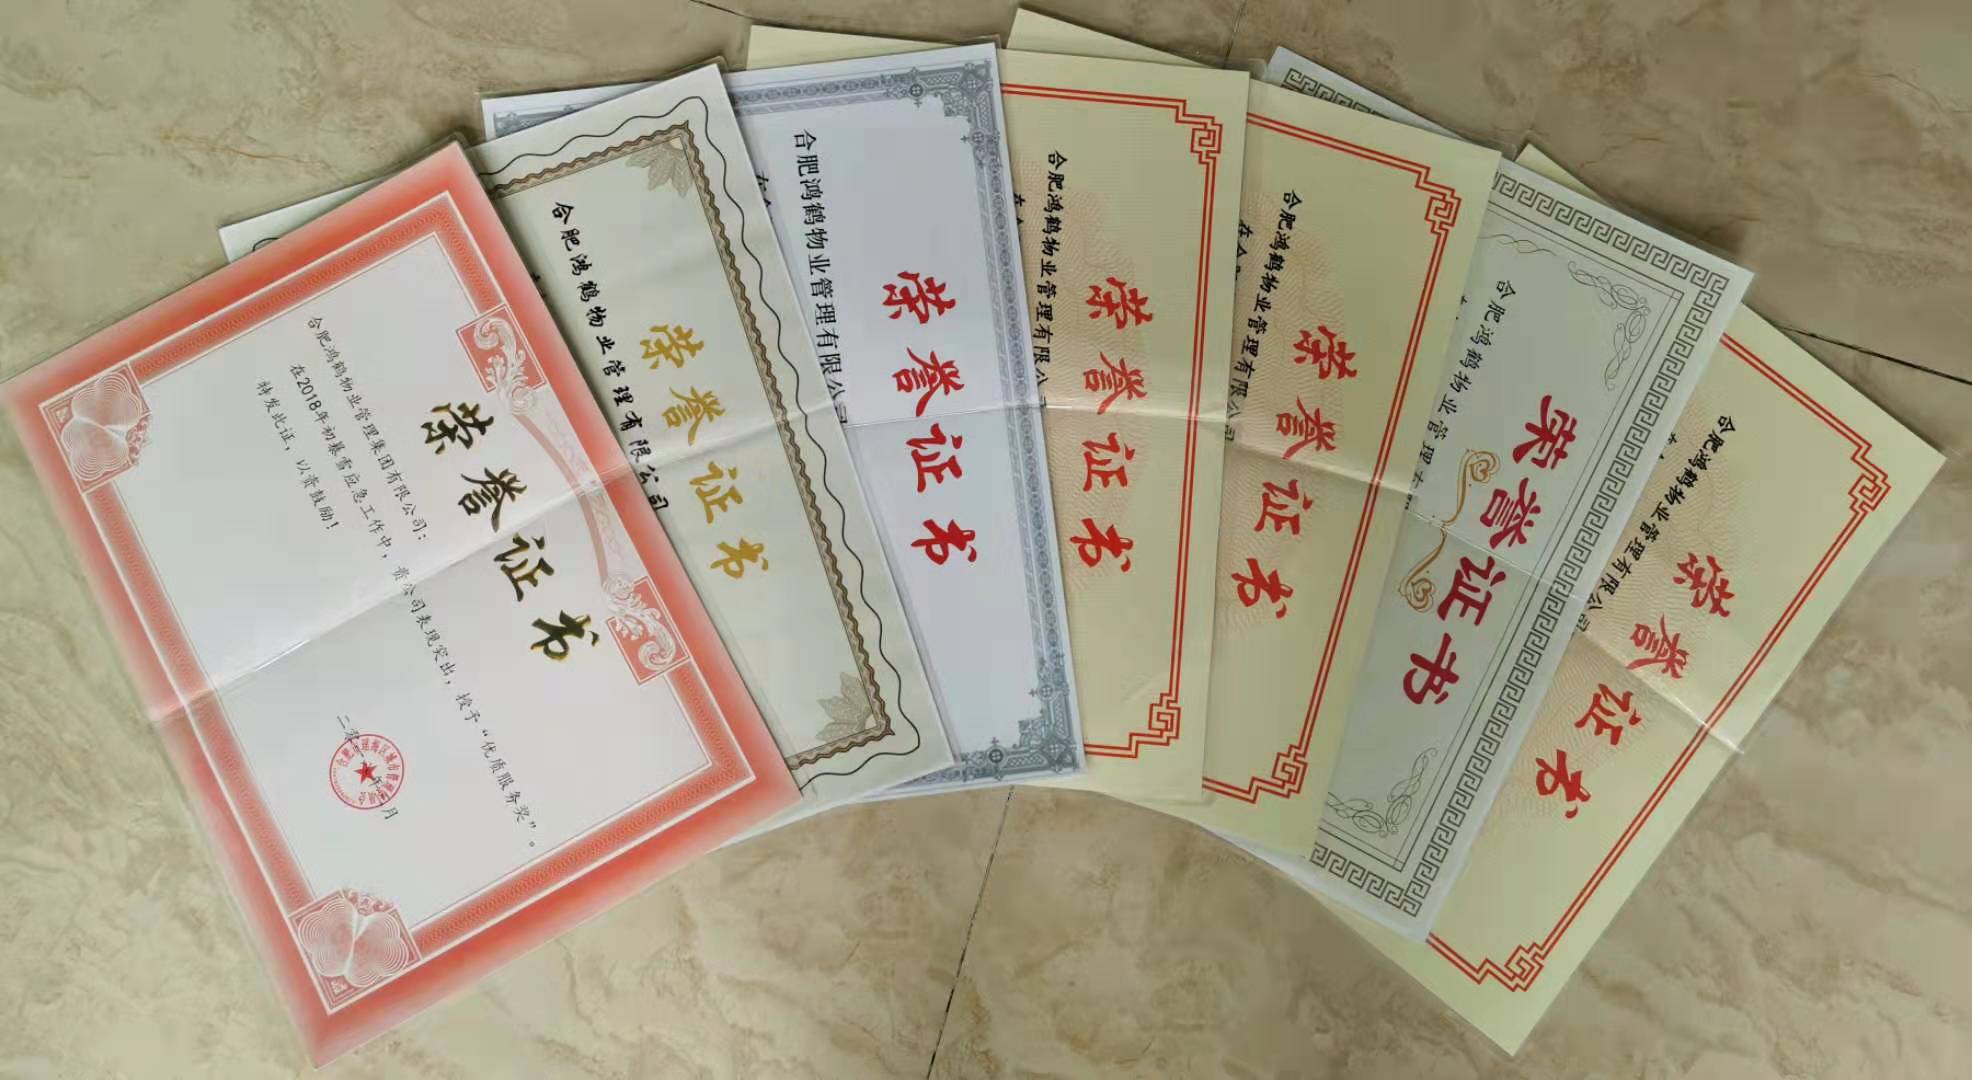 荣誉证书
合肥鸿鹤物业管理集团有限公司：
在2018年初暴雪应急工作中，贵公司表现突出，授予“优质服务奖”。
特发此证，以资鼓励！
荣誉证书
合肥鸿鹤物业管理有限公司
荣誉证书
合肥鸿鹤物业管理有限公司
荣誉证书
合肥鸿鹤物业管理有限公司
在
荣誉证书
合肥鸿鹤物业管理有限公司
在合肥
荣誉证书
合肥鸿鹤物业管理有限
荣誉证书
合肥鸿鹤物业管理有限公司